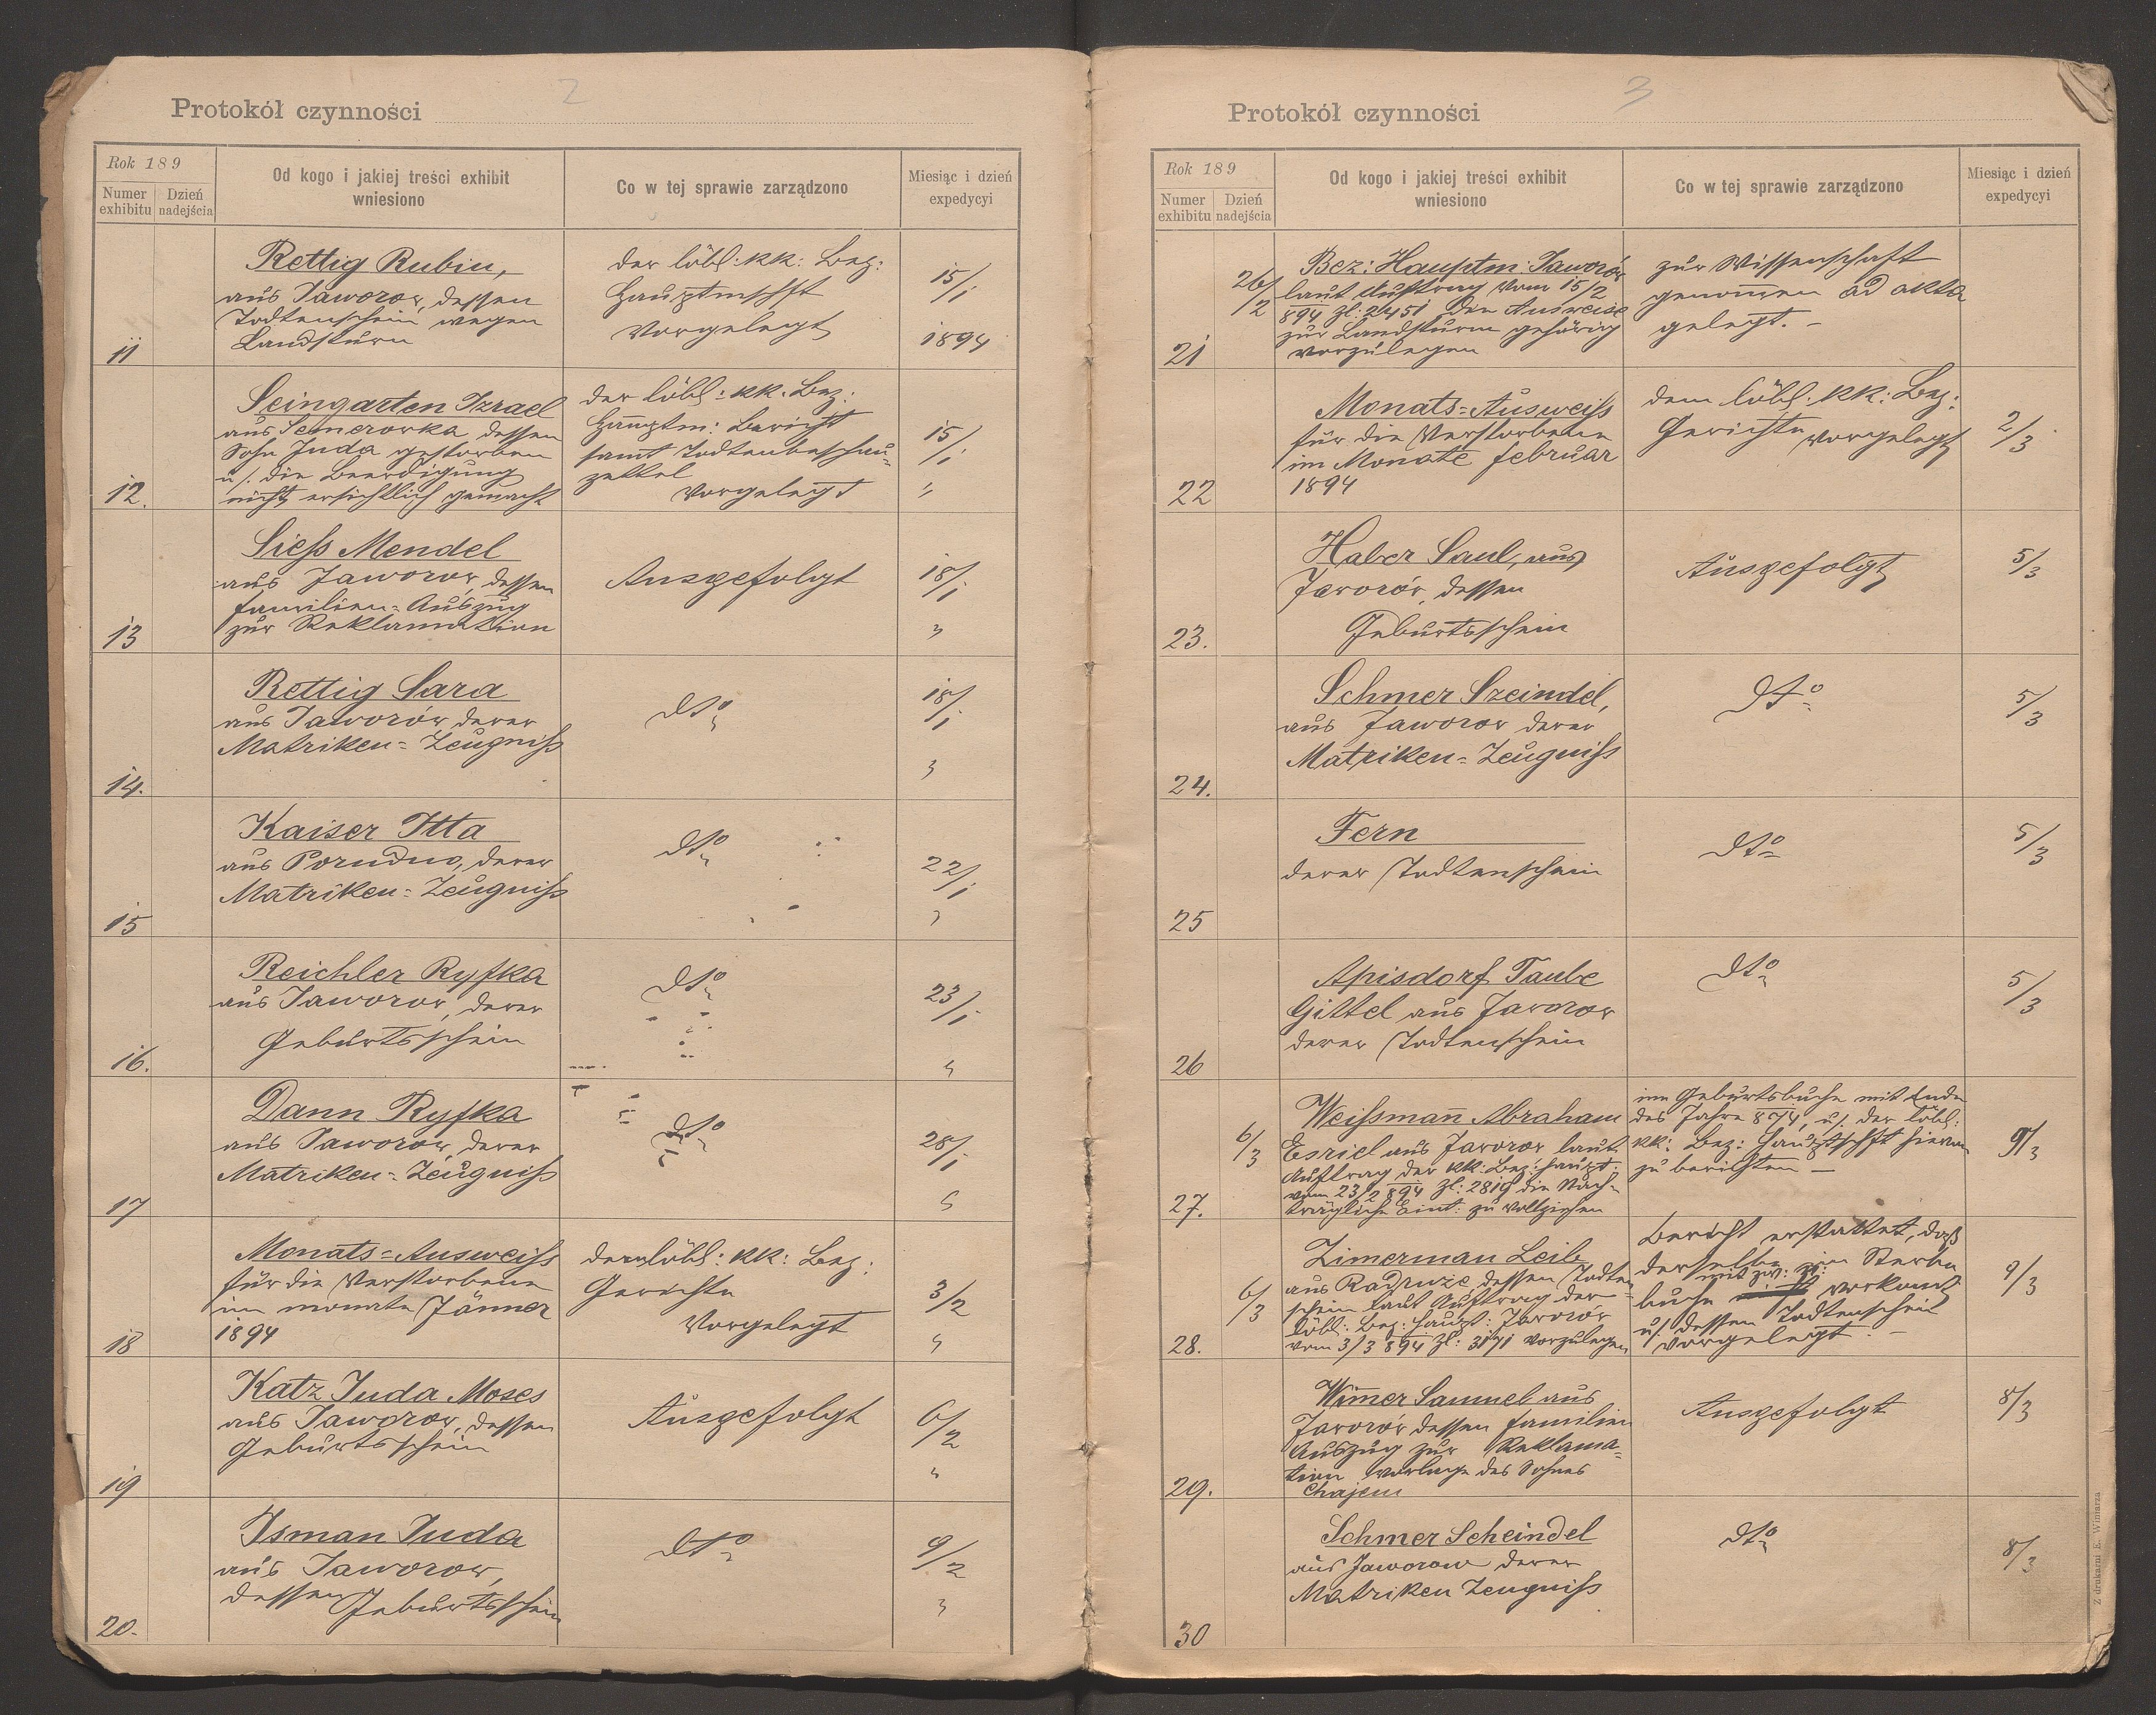 2
Protokół czynności
Rok 189
Numer exhibitu
Dzień nadejścia
Od kogo i jakiej treści exhibit wniesiono
Co w tej sprawie zarządzono
Miesiąc i dzień expedycyi
11
Rettig Rubin,
aus Jaworow, dessen
Todtenschein wegen
Landsturm
der löbl: kk: Bez:
Hauptmschft
vorgelegt
15/1
1894
12.
Leingarten Izrael
aus Semerowka dessen
Sohn Juda gestorben
u. die Beerdigung
nicht ersichtlich gemacht
der löbl: kk. Bez:
Hauptm: Bericht
samt Todtenbeschau-
zettel
vorgelegt
15/1
"
13
Siess Mendel
aus Jaworow, dessen
Familien-Auszug
zur Reklamation
Ausgefolgt
18/1
"
14.
Rettig Sara
aus Jaworów, derer
Matriken-Zeugniss
dto
18/1
"
15
Kaiser Itta
aus Porudno, derer
Matriken-Zeugniss
dto
22/1
"
16.
Reichler Ryfka
aus Jaworow, derer
Geburtsschein
dto
23/1
"
17
Dann Ryfka
aus Jaworow, derer
Matriken-Zeugniss
dto
28/1
"
18
Monats-Ausweiss
für die Verstorbene
im monate Jänner
1894
dem löbl: kk: Bez:
Gerichte
vorgelegt
3/2
"
19
Katz Juda Moses
aus Jaworow, dessen
Geburtsschein
Ausgefolgt
6/2
"
20.
Isman Juda
aus Jaworow,
dessen Geburtsschein
dto
9/2
"
3
Protokół czynności
Rok 189
Numer exhibitu
Dzień nadejścia
Od kogo i jakiej treści exhibit wniesiono
Co w tej sprawie zarządzono
Miesiąc i dzień expedycyi
21
26/2
Bez: Hauptm: Jaworów
laut Auftrag vom 15/2
894 Zl: 2451 die Ausweise
zur Landsturm gehörig
vorzulegen
zur Wissenschaft
genommen ad akta
gelegt. –
22
Monats-Ausweiss
für die Verstorbene
im Monate Februar
1894
dem löbl. kk: Bez:
Gerichte vorgelegt
2/3
23.
Haber Saul, aus
Jaworów, dessen
Geburtsschein
Ausgefolgt
5/3
24.
Schmer Szeindel,
aus Jaworow derer
Matriken-Zeugniss
dto
5/3
25
Fern
derer Todtenschein
dto
5/3
26
Apisdorf Taube
Gittel aus Jaworow
derer Todtenschein
dto
5/3
27.
6/3
Weissmañ Abraham
Esriel aus Jaworow, laut
Auftrag der kk: Bez: Haupt:
vom 23/2 894 Zl: 2819 die Nach-
trägliche Eint: zu vollziehen
im Geburtsbuche mit Ende
des Jahre 874, u. der löbl:
kk: Bez: Hauptschft hievon
zu berichten –
9/3
28.
6/3
Zimerman Leib
aus Radruze dessen Todten-
schein laut Auftrag der
löbl: Bez: Haupt: Jaworów
vom 3/3 894 Zl: 3171 vorzulegen
Bericht erstattet, dass
derselbe im Sterbe
buche nicht vorkomt
u. dessen Todtenschein
vorgelegt. –
9/3
29.
Wim̄er Samuel aus
Jaworów dessen Familien
Auszug zur Reklama-
tion Vorlage des Sohnes
Chajem
Ausgefolgt
8/3
30
Schmer Scheindel
aus Jaworow derer
Matriken Zeugniss
dto
8/3
Z drukarni E. Winiarza